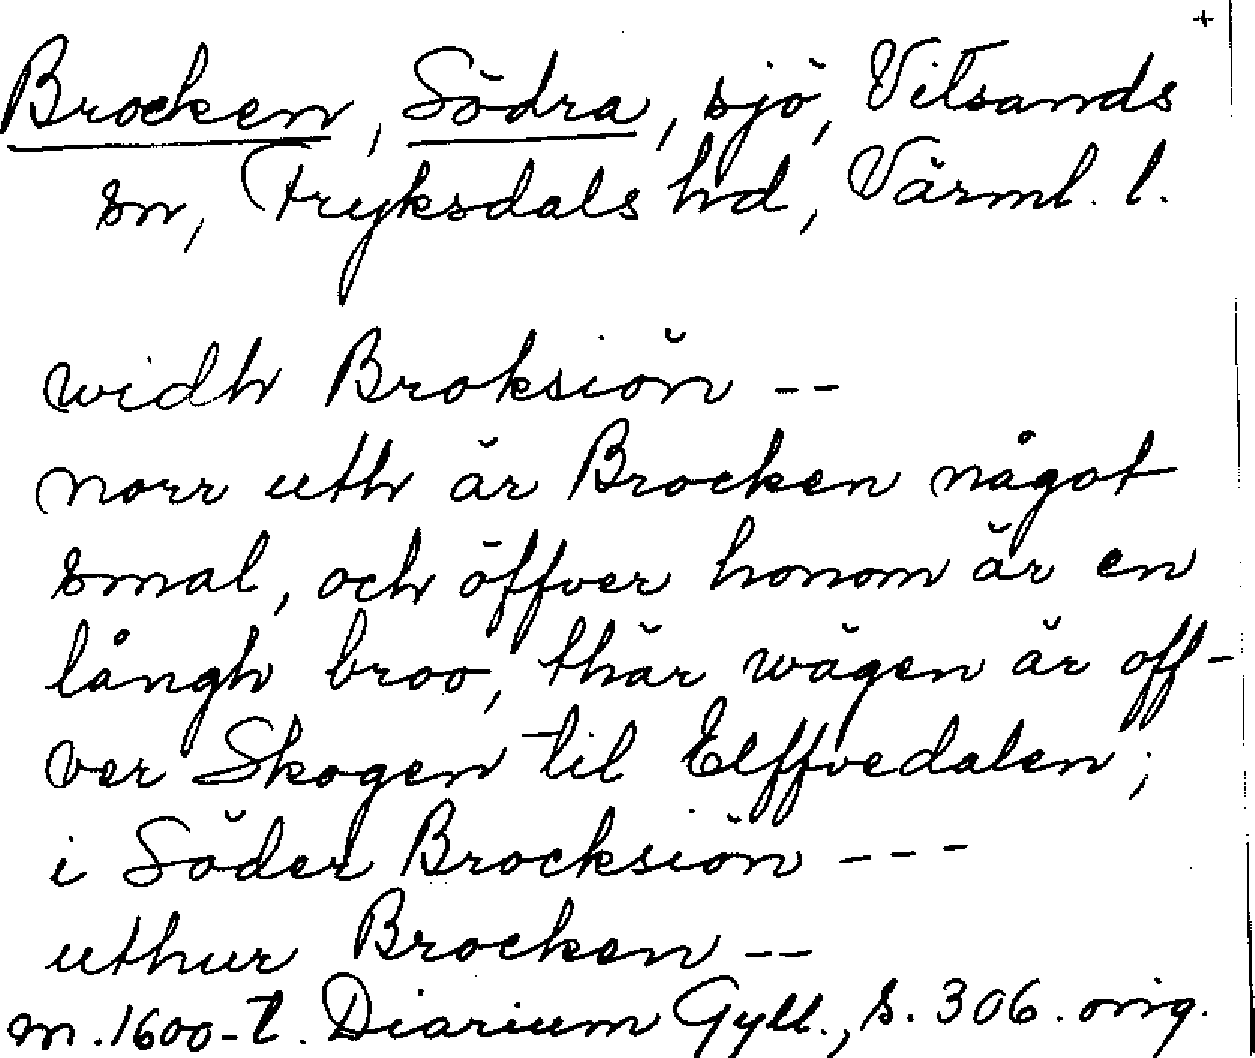 +
Brocken, Södra, sjö, Vitsands
sn, Fryksdals hd, Värml. l.
widh Broksiön --
norr uth är Brocken något
smal, och öffver honom är en
långh broo, thär wägen är öff-
ver Skogen til Elffvedalen;
i Söder Brocksiön ---
uthur Brocken --
m. 1600-t. Diarium Gyll., s. 306. orig.